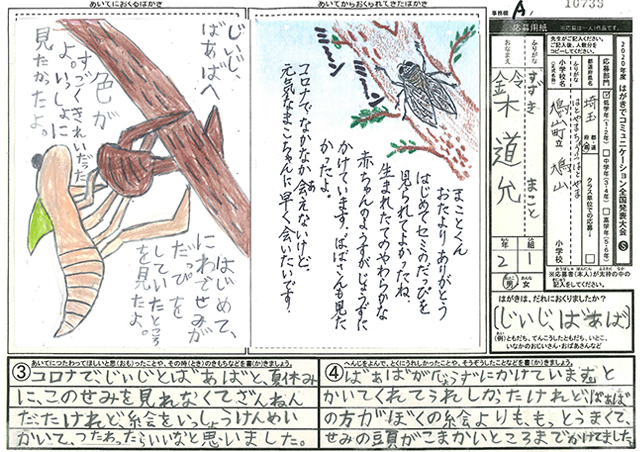 あいてにおくるはがき
じぃじ、
ばぁばへ
色が
すごくきれいだった
よ。いっしょに
見たかったよ。
はじめて、
にわでせみが
だっぴを
していたところ
を見たよ。
あいてからおくられてきたはがき
ミーン
ミーン
まことくん
おたよりありがとう
はじめてセミのだっぴを
見られてよかったね。
生まれたてのやわらかな
赤ちゃんのようすがじょうずに
かけています。ばばさんも見た
かったよ。
コロナでなかなか会えないけど、
元気なまこちゃんに早く、会いたいです。
事務局
A
10735
2020年度 はがきでコミュニケーション全国発表大会
応募用紙
※応募票は一人1作品です。
先生がご記入ください。
ご記入後、人数分を
コピーしてください。
応募部門
低学年(1・2年)
中学年(3・4年)
高学年(5・6年)
都道府県名
埼玉
クラス単位での応募
小学校名
ふりがな
はとやまちょうりつはとやま
鳩山町立 鳩山
小学校
おなまえ
ふりがな
すずき まこと
鈴木 道允
2年
1組
男
女
※応募者(本人)が太枠の中の
記入をしてください。
はがきは、だれにおくりましたか?
(じぃじ、ばぁば)
(例)ともだち、てんこうしたともだち、いとこ、
いなかのおじいさん・おばあさんなど
③
あいてにつたわってほしいと思(おも)ったことや、その時(とき)のきもちなどを書(か)きましょう。
コロナでじぃじとばぁばと、夏休み
に、このせみを見れなくてざんねん
だったけれど、絵をいっしょうけんめい
かいて、つたわったらいいなと思いました。
④
へんじをよんで、とくにうれしかったことや、そうぞうしたことなどを書(か)きましょう。
ばぁばがじょうずにかけていますと
かいてくれてうれしかったけれどばぁば
の方がぼくの絵よりも、もっとうまくて、
せみの頭がこまかいところまでかけてました。